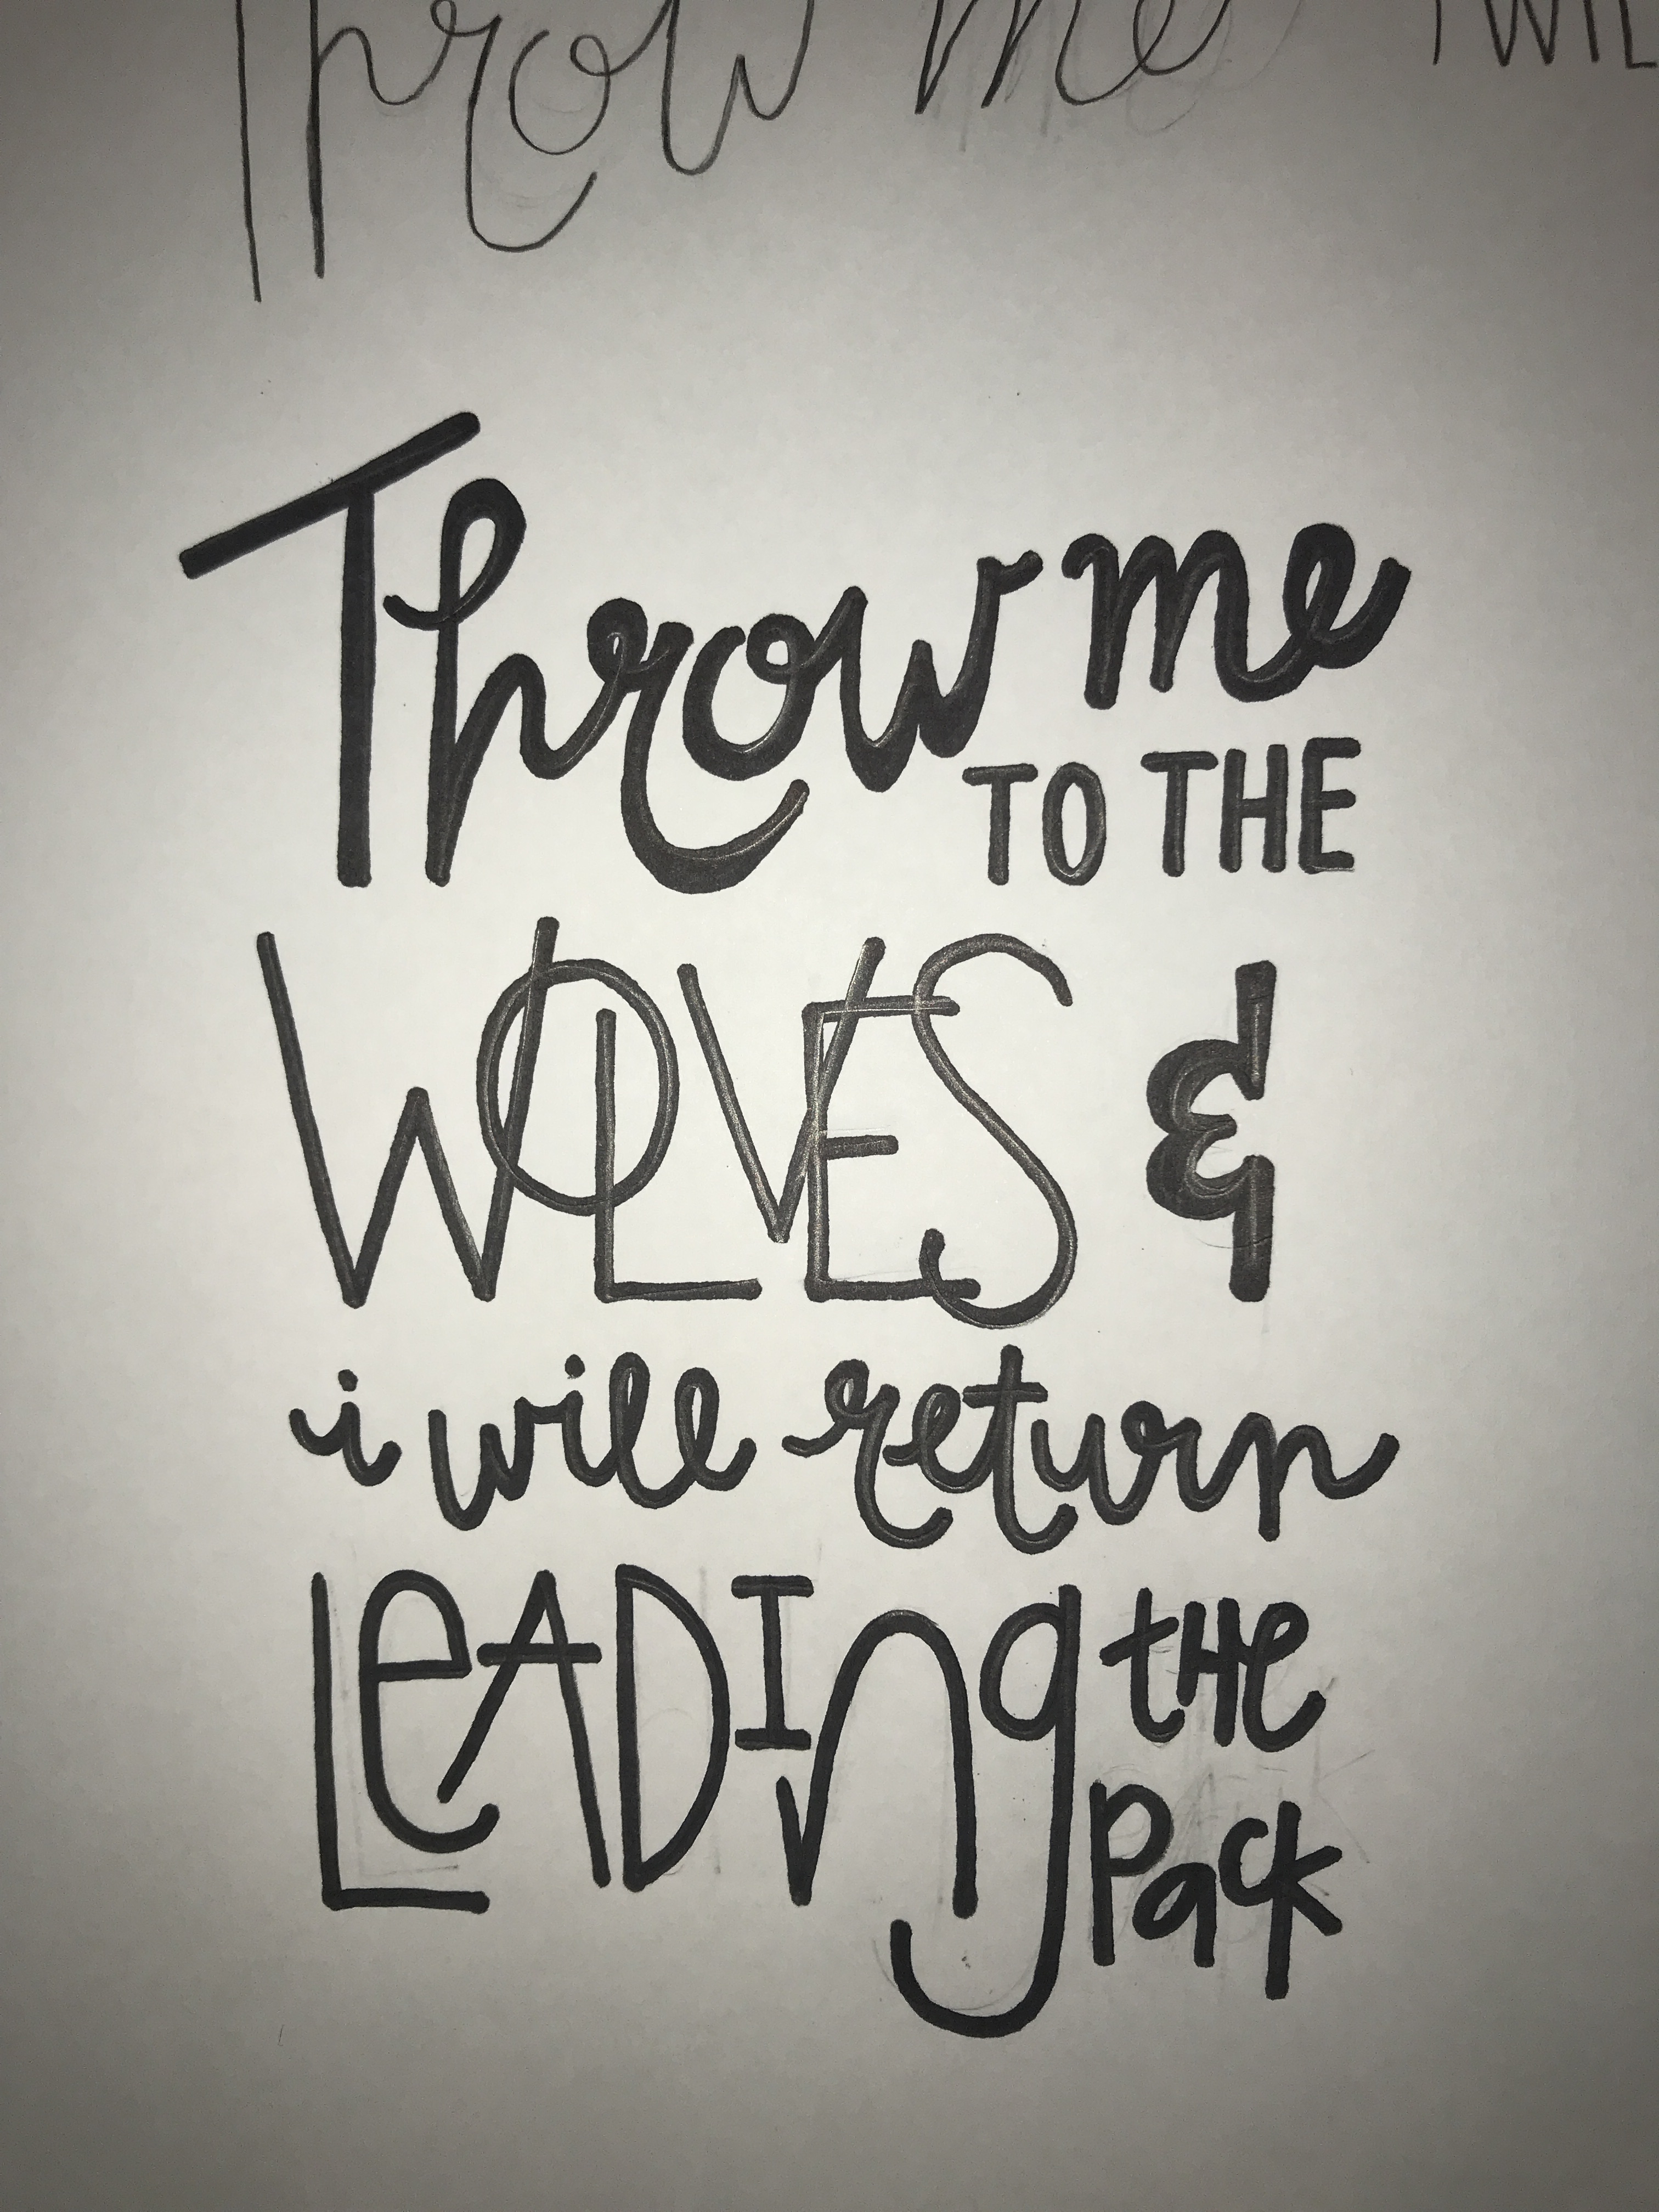 Throw me I WIL
Throw me
TO THE
WOLVES &
i will return
LeADIng tHe
Pack